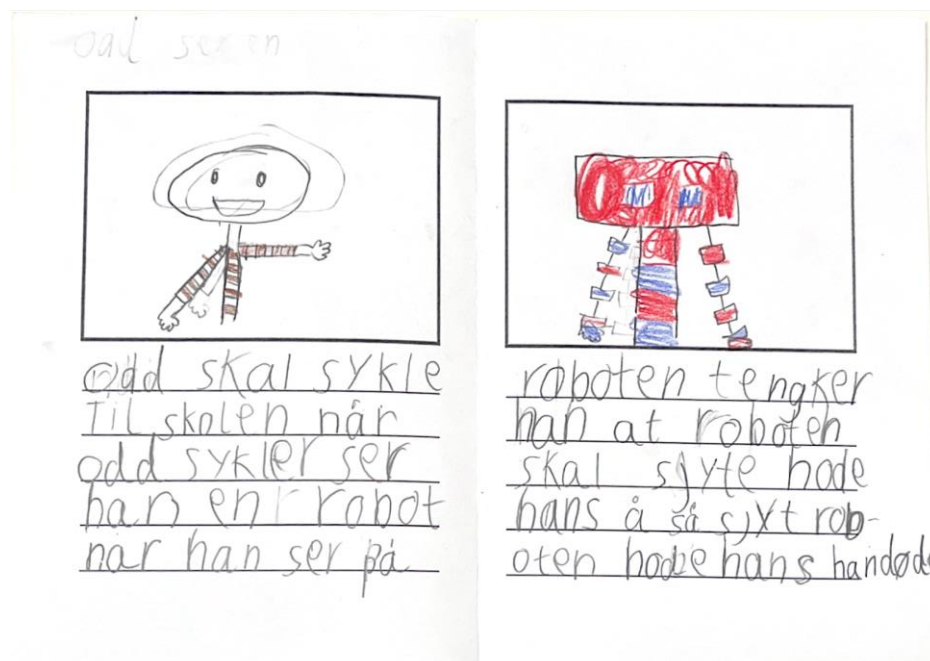 odd ser en
odd skal sykle
til skolen når
odd sykler ser
han en robot
når han ser på
roboten tengker
han at roboten
skal sjyte hode
hans å så sjyt rob-
oten hode hans handøde